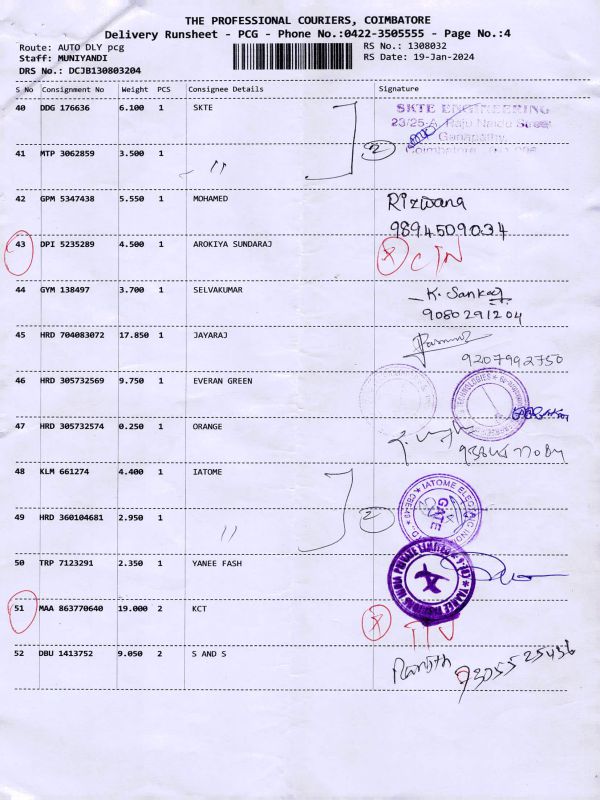 THE PROFESSIONAL COURIERS, COIMBATORE
Delivery Runsheet - PCG - Phone No.:0422-3505555 - Page No.:4
Route: AUTO DLY pcg
Staff: MUNIYANDI
DRS No.: DCJB130803204
RS No.: 1308032
RS Date: 19-Jan-2024
S No Consignment No Weight PCS Consignee Details Signature
40 DDG 176636 6.100 1 SKTE
SKTE ENGINEERING
23/25-A, Raju Naidu Street
Ganapathy
Coimbatore
41 MTP 3062859 3.500 1 " 2
42 GPM 5347438 5.550 1 MOHAMED Rizwana
9894509034
43 DPI 5235289 4.500 1 AROKIYA SUNDARAJ
44 GYM 138497 3.700 1 SELVAKUMAR K. Sankar
9080291204
45 HRD 704083072 17.850 1 JAYARAJ
9207992750
46 HRD 305732569 9.750 1 EVERAN GREEN
TECHNOLOGIES
47 HRD 305732574 0.250 1 ORANGE
48 KLM 661274 4.400 1 IATOME
IATOME ELECTRIC
GATE
49 HRD 360104681 2.950 1 " 2
50 TRP 7123291 2.350 1 YANEE FASH
INDIA PRIVATE LIMITED
51 MAA 863770640 19.000 2 KCT
52 DBU 1413752 9.050 2 S AND S Ranjith